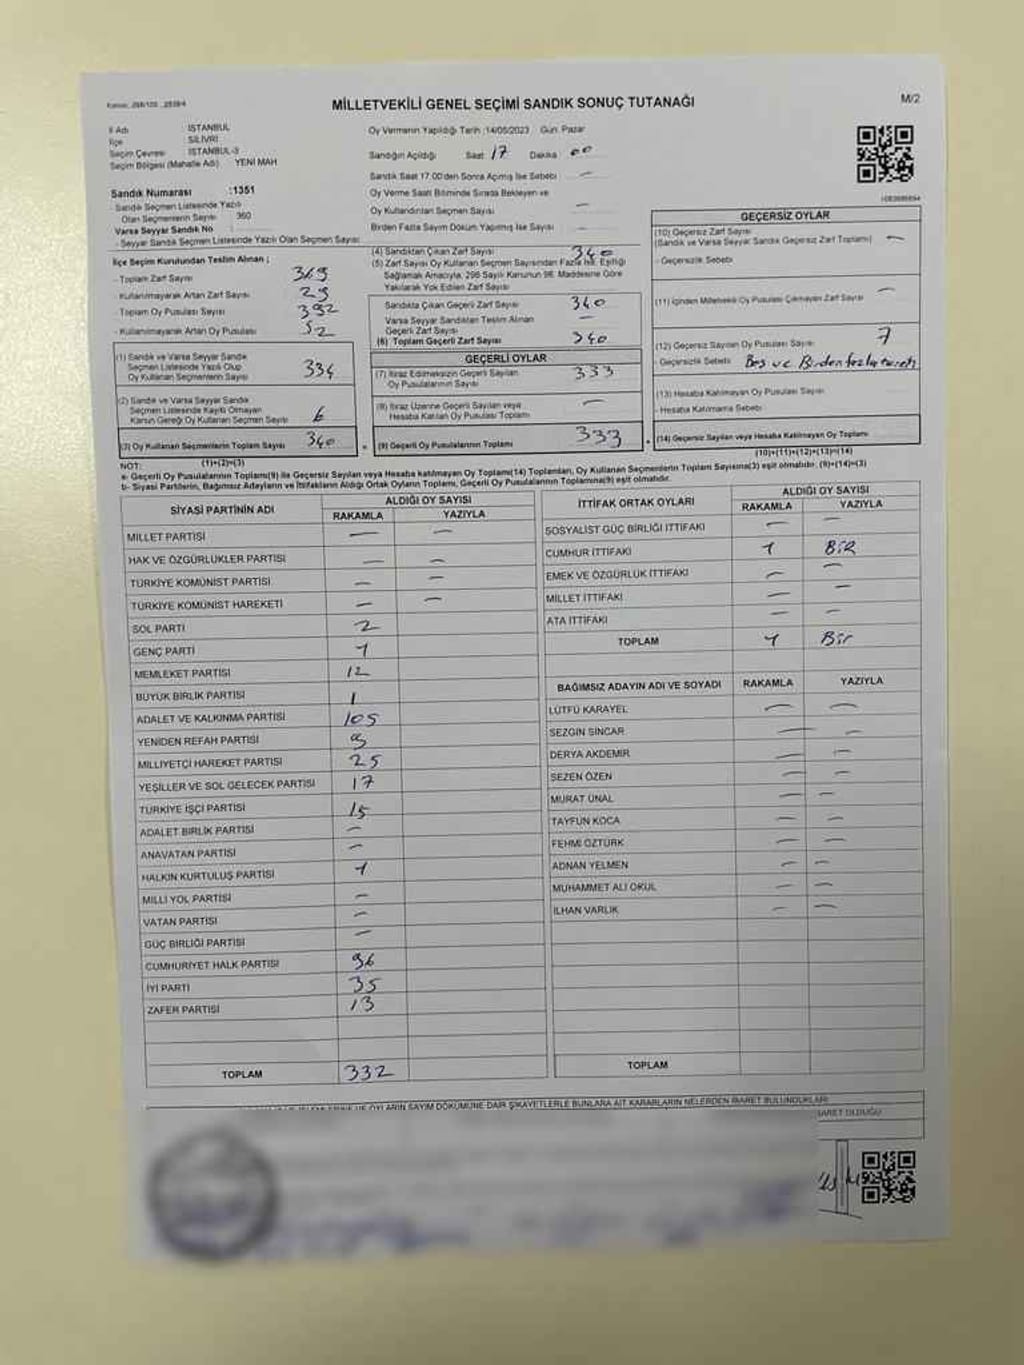 MİLLETVEKİLİ GENEL SEÇİMİ SANDIK SONUÇ TUTANAĞI
M/2
İl Adı İSTANBUL
İlçe SİLİVRİ
Seçim Çevresi İSTANBUL-3
Seçim Bölgesi (Mahalle Adı) YENİ MAH
Sandık Numarası :1351
- Sandık Seçmen Listesinde Yazılı
Olan Seçmenlerin Sayısı 360
Varsa Seyyar Sandık No
- Seyyar Sandık Seçmen Listesinde Yazılı Olan Seçmen Sayısı
İlçe Seçim Kurulundan Teslim Alınan ;
- Toplam Zarf Sayısı 369
- Kullanılmayarak Artan Zarf Sayısı 29
- Toplam Oy Pusulası Sayısı 392
- Kullanılmayarak Artan Oy Pusulası 52
(1) Sandık ve Varsa Seyyar Sandık
Seçmen Listesinde Yazılı Olup
Oy Kullanan Seçmenlerin Sayısı 334
(2) Sandık ve Varsa Seyyar Sandık
Seçmen Listesinde Kayıtlı Olmayan
Kanun Gereği Oy Kullanan Seçmen Sayısı 6
(3) Oy Kullanan Seçmenlerin Toplam Sayısı 340
(1)+(2)=(3)
Oy Vermenin Yapıldığı Tarih :14/05/2023 Gün: Pazar
Sandığın Açıldığı Saat 17 Dakika 00
Sandık Saat 17.00'den Sonra Açılmış İse Sebebi —
Oy Verme Saati Bitiminde Sırada Bekleyen ve
Oy Kullandırılan Seçmen Sayısı —
Birden Fazla Sayım Döküm Yapılmış İse Sayısı —
(4) Sandıktan Çıkan Zarf Sayısı 340
(5) Zarf Sayısı Oy Kullanan Seçmen Sayısından Fazla İse, Eşitliği
Sağlamak Amacıyla, 298 Sayılı Kanunun 98. Maddesine Göre
Yakılarak Yok Edilen Zarf Sayısı
Sandıkta Çıkan Geçerli Zarf Sayısı 340
Varsa Seyyar Sandıktan Teslim Alınan
Geçerli Zarf Sayısı —
(6) Toplam Geçerli Zarf Sayısı 340
GEÇERLİ OYLAR
(7) İtiraz Edilmeksizin Geçerli Sayılan
Oy Pusulalarının Sayısı 333
(8) İtiraz Üzerine Geçerli Sayılan veya
Hesaba Katılan Oy Pusulası Toplamı —
(9) Geçerli Oy Pusulalarının Toplamı 333
GEÇERSİZ OYLAR
(10) Geçersiz Zarf Sayısı
(Sandık ve Varsa Seyyar Sandık Geçersiz Zarf Toplamı) —
- Geçersizlik Sebebi
(11) İçinden Milletvekili Oy Pusulası Çıkmayan Zarf Sayısı —
(12) Geçersiz Sayılan Oy Pusulası Sayısı 7
- Geçersizlik Sebebi Boş ve Birden fazla tercih
(13) Hesaba Katılmayan Oy Pusulası Sayısı
- Hesaba Katılmama Sebebi
(14) Geçersiz Sayılan veya Hesaba Katılmayan Oy Toplamı
(10)+(11)+(12)+(13)=(14)
NOT:
a- Geçerli Oy Pusulalarının Toplamı(9) ile Geçersiz Sayılan veya Hesaba katılmayan Oy Toplamı(14) Toplamları, Oy Kullanan Seçmenlerin Toplam Sayısına(3) eşit olmalıdır. (9)+(14)=(3)
b- Siyasi Partilerin, Bağımsız Adayların ve İttifakların Aldığı Ortak Oyların Toplamı, Geçerli Oy Pusulalarının Toplamına(9) eşit olmalıdır.
SİYASİ PARTİNİN ADI ALDIĞI OY SAYISI
RAKAMLA YAZIYLA
MİLLET PARTİSİ — —
HAK VE ÖZGÜRLÜKLER PARTİSİ — —
TÜRKİYE KOMÜNİST PARTİSİ — —
TÜRKİYE KOMÜNİST HAREKETİ — —
SOL PARTİ 2
GENÇ PARTİ 1
MEMLEKET PARTİSİ 12
BÜYÜK BİRLİK PARTİSİ 1
ADALET VE KALKINMA PARTİSİ 105
YENİDEN REFAH PARTİSİ 9
MİLLİYETÇİ HAREKET PARTİSİ 25
YEŞİLLER VE SOL GELECEK PARTİSİ 17
TÜRKİYE İŞÇİ PARTİSİ 15
ADALET BİRLİK PARTİSİ —
ANAVATAN PARTİSİ —
HALKIN KURTULUŞ PARTİSİ 1
MİLLİ YOL PARTİSİ —
VATAN PARTİSİ —
GÜÇ BİRLİĞİ PARTİSİ —
CUMHURİYET HALK PARTİSİ 96
İYİ PARTİ 35
ZAFER PARTİSİ 13
TOPLAM 332
İTTİFAK ORTAK OYLARI ALDIĞI OY SAYISI
RAKAMLA YAZIYLA
SOSYALİST GÜÇ BİRLİĞİ İTTİFAKI — —
CUMHUR İTTİFAKI 1 BİR
EMEK VE ÖZGÜRLÜK İTTİFAKI — —
MİLLET İTTİFAKI — —
ATA İTTİFAKI — —
TOPLAM 1 Bir
BAĞIMSIZ ADAYIN ADI VE SOYADI RAKAMLA YAZIYLA
LÜTFÜ KARAYEL — —
SEZGİN SİNCAR — —
DERYA AKDEMİR — —
SEZEN ÖZEN — —
MURAT ÜNAL — —
TAYFUN KOCA — —
FEHMİ ÖZTÜRK — —
ADNAN YELMEN — —
MUHAMMET ALİ OKUL — —
İLHAN VARLIK — —
TOPLAM
OYLARIN SAYIM DÖKÜMÜNE DAİR ŞİKAYETLERLE BUNLARA AİT KARARLARIN NELERDEN İBARET BULUNDUKLARI
İBARET OLDUĞU